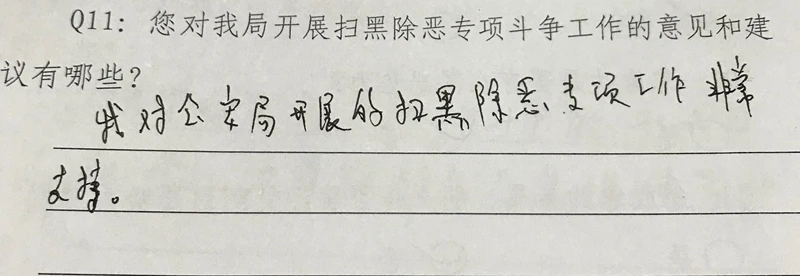 Q11: 您对我局开展扫黑除恶专项斗争工作的意见和建
议有哪些?
我对公安局开展的扫黑除恶专项工作非常
支持。